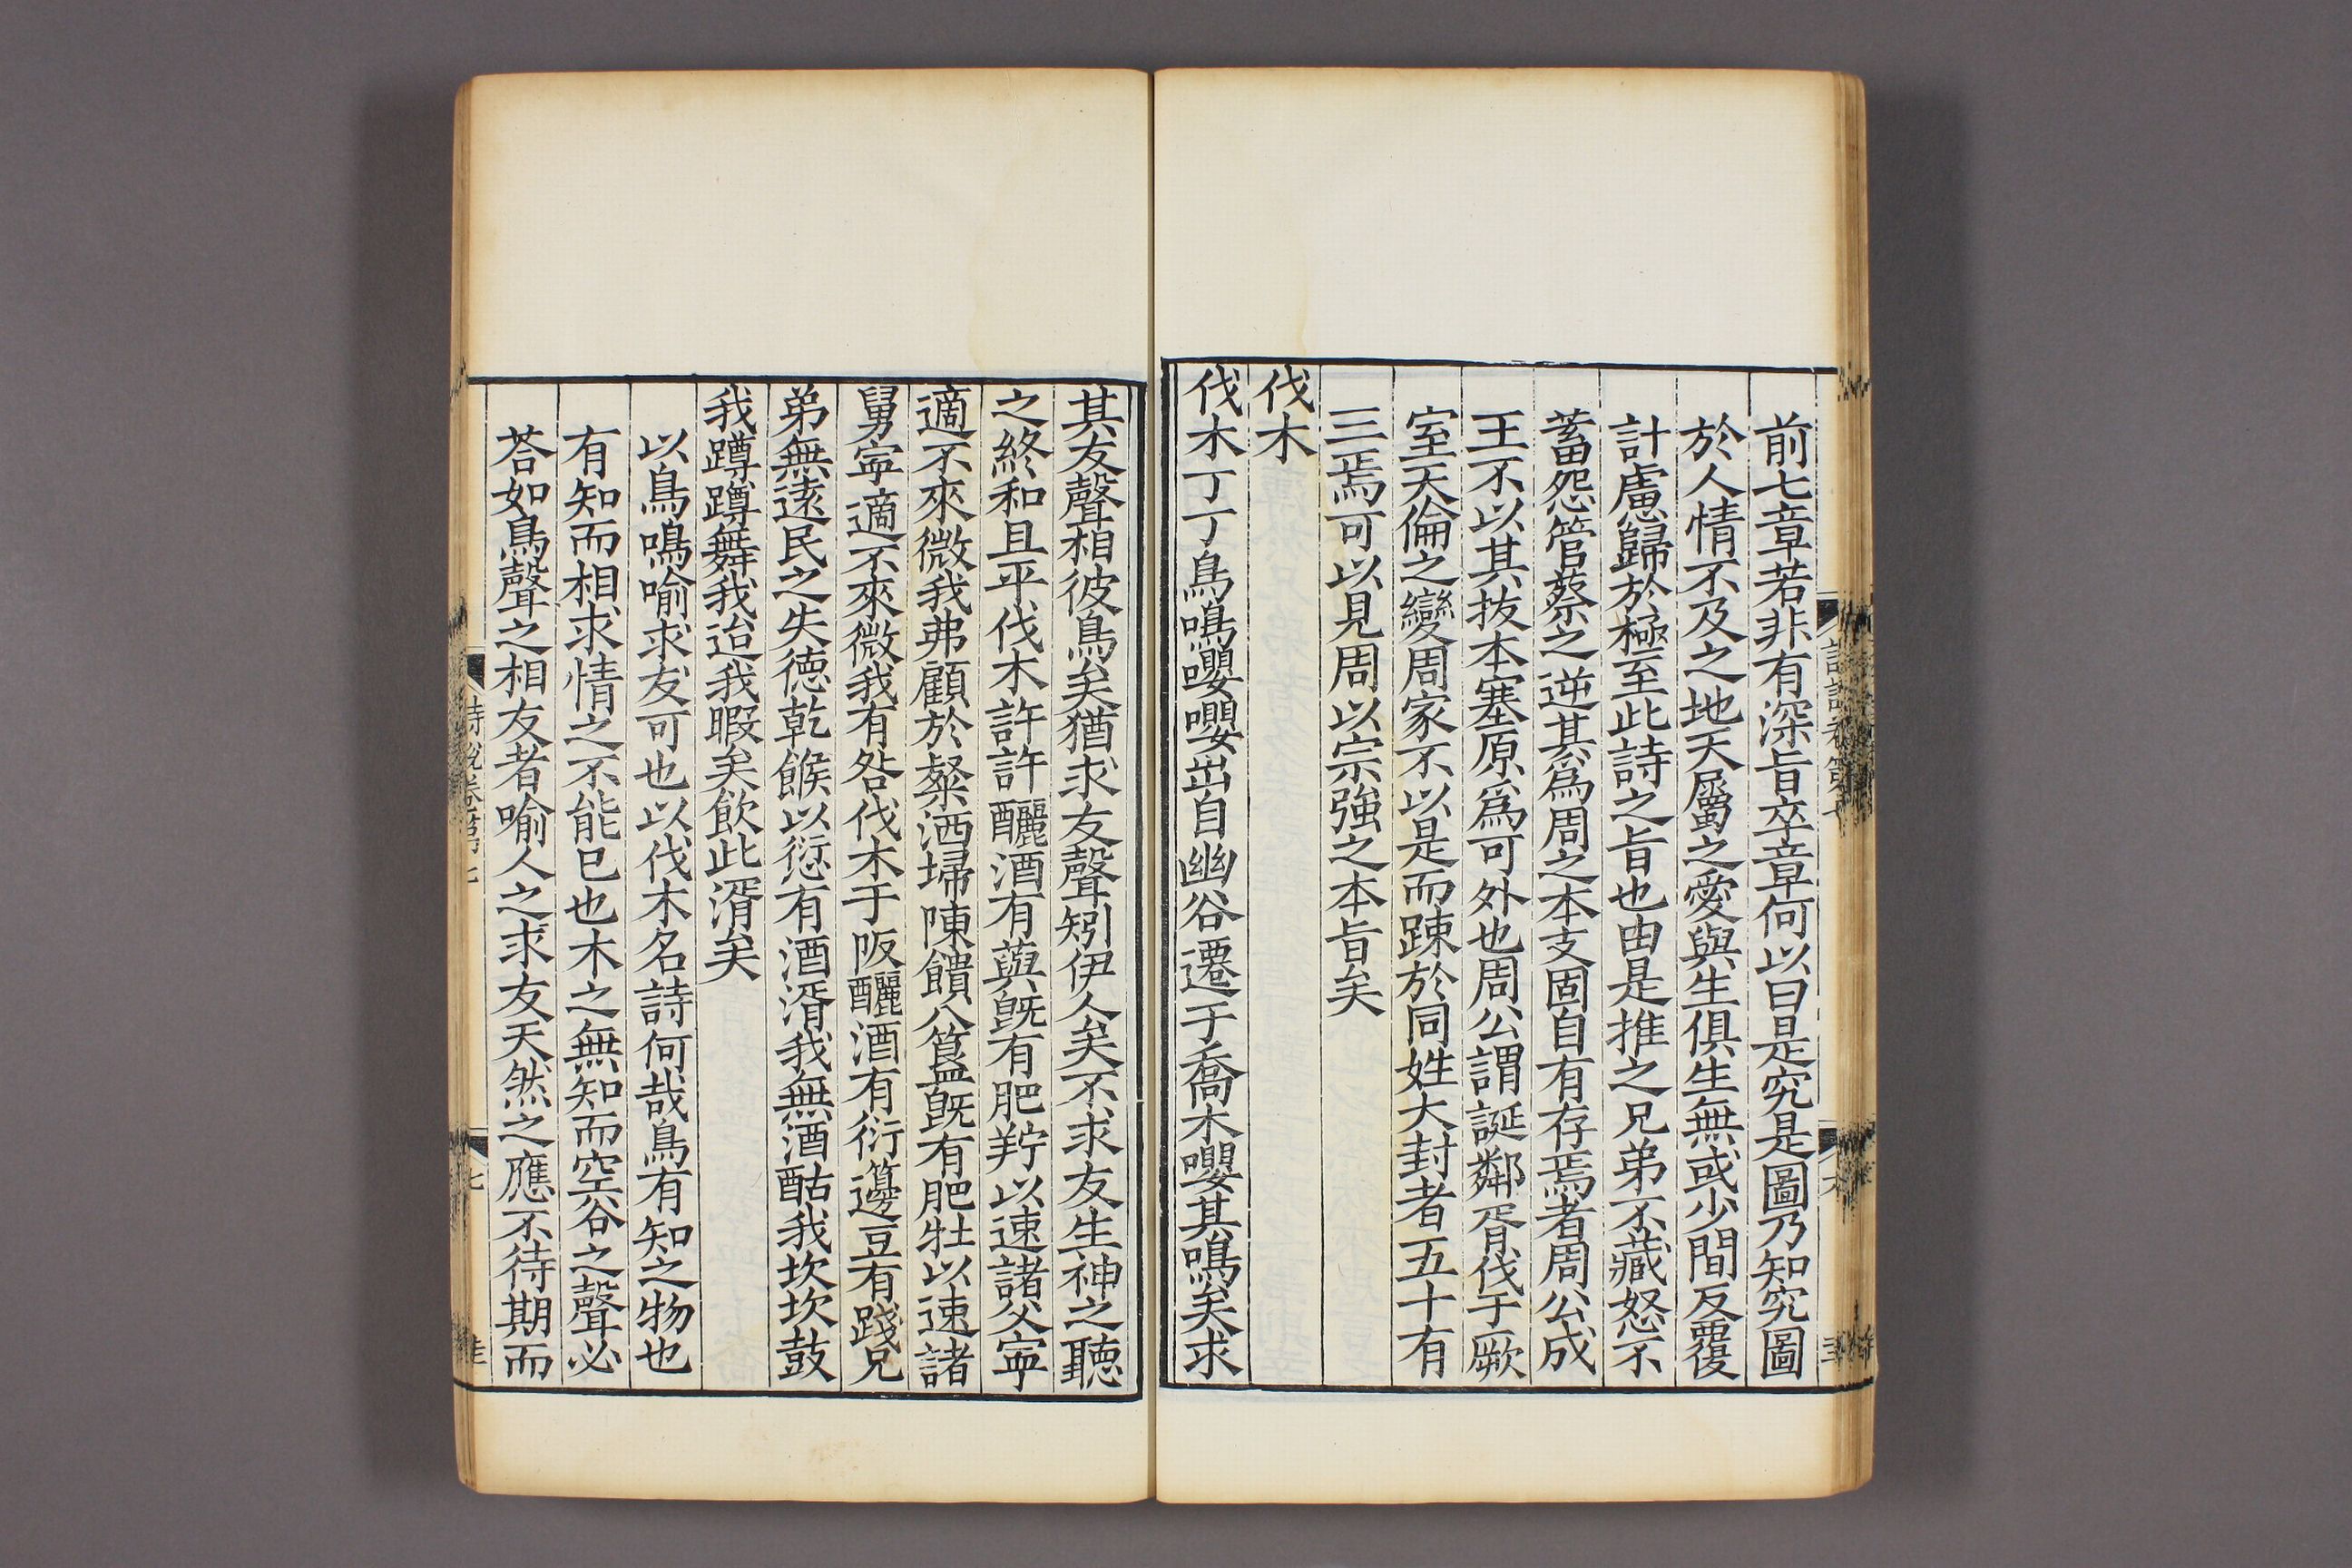 前七章若非有深旨卒章何以曰是究是圖乃知究圖
於人情不及之地天屬之愛與生俱生無或少間反覆
計慮歸於極至此詩之旨也由是推之兄弟不藏怒不
蓄怨管蔡之逆其爲周之本支固自有存焉者周公成
王不以其拔本塞原爲可外也周公謂誕鄰胥伐于厥
室天倫之變周家不以是而踈於同姓大封者五十有
三焉可以見周以宗強之本旨矣
伐木
伐木丁丁鳥鳴嚶嚶出自幽谷遷于喬木嚶其鳴矣求
其友聲相彼鳥矣猶求友聲矧伊人矣不求友生神之聽
之終和且平伐木許許釃酒有藇旣有肥羜以速諸父寧
適不來微我弗顧於粲洒埽陳饋八簋旣有肥牡以速諸
舅寧適不來微我有咎伐木于阪釃酒有衍籩豆有踐兄
弟無遠民之失德乾餱以愆有酒湑我無酒酤我坎坎鼓
我蹲蹲舞我迨我暇矣飲此湑矣
以鳥鳴喻求友可也以伐木名詩何哉鳥有知之物也
有知而相求情之不能已也木之無知而空谷之聲必
荅如鳥聲之相友者喻人之求友天然之應不待期而
詩說卷第七
七